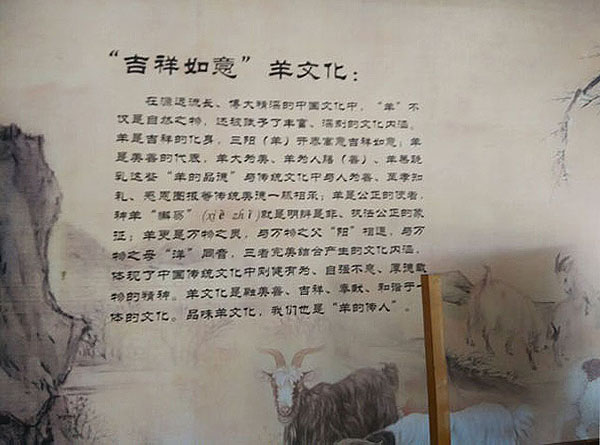 “吉祥如意”羊文化：
在源远流长、博大精深的中国文化中，“羊”不
仅是自然之物，还被赋予了丰富、深刻的文化内涵。
羊是吉祥的化身，三阳（羊）开泰寓意吉祥如意；羊
是美善的代表，羊大为美、羊为人膳（善）、羊羔跪
乳这些“羊的品德”与传统文化中与人为善、至孝知
礼、感恩图报等传统美德一脉相承；羊是公正的使者，
神羊“獬豸”(xiè zhì)就是明辨是非、执法公正的象
征；羊更是万物之灵，与万物之父“阳”相通，与万
物之母“洋”同音，三者完美结合产生的文化内涵，
体现了中国传统文化中刚健有为、自强不息、厚德载
物的精神。羊文化是融美善、吉祥、奉献、和谐于一
体的文化。品味羊文化，我们也是“羊的传人”。